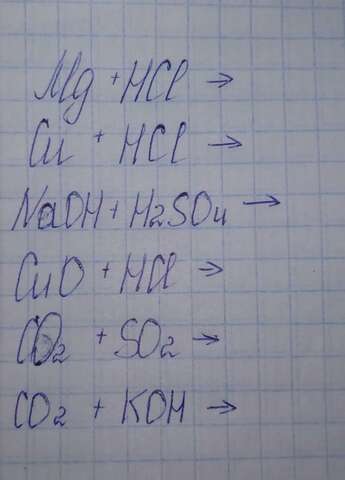 Mg + HCl →
Cu + HCl →
NaOH + H2SO4 →
CuO + HCl →
CO2 + SO2 →
CO2 + KOH →